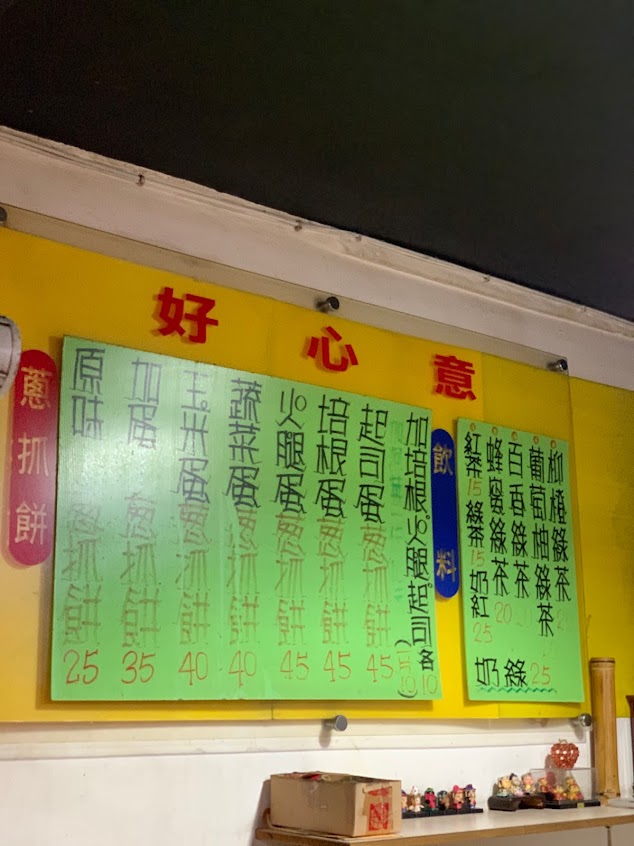 好心意
蔥抓餅
原味蔥抓餅 25
加蛋蔥抓餅 35
玉米蛋蔥抓餅 40
蔬菜蛋蔥抓餅 40
火腿蛋蔥抓餅 45
培根蛋蔥抓餅 45
起司蛋蔥抓餅 45
加培根火腿起司 10
飲料
紅茶 15
綠茶 15
奶紅 25
蜂蜜綠茶 20
百香綠茶
葡萄柚綠茶
柳橙綠茶
奶綠 25